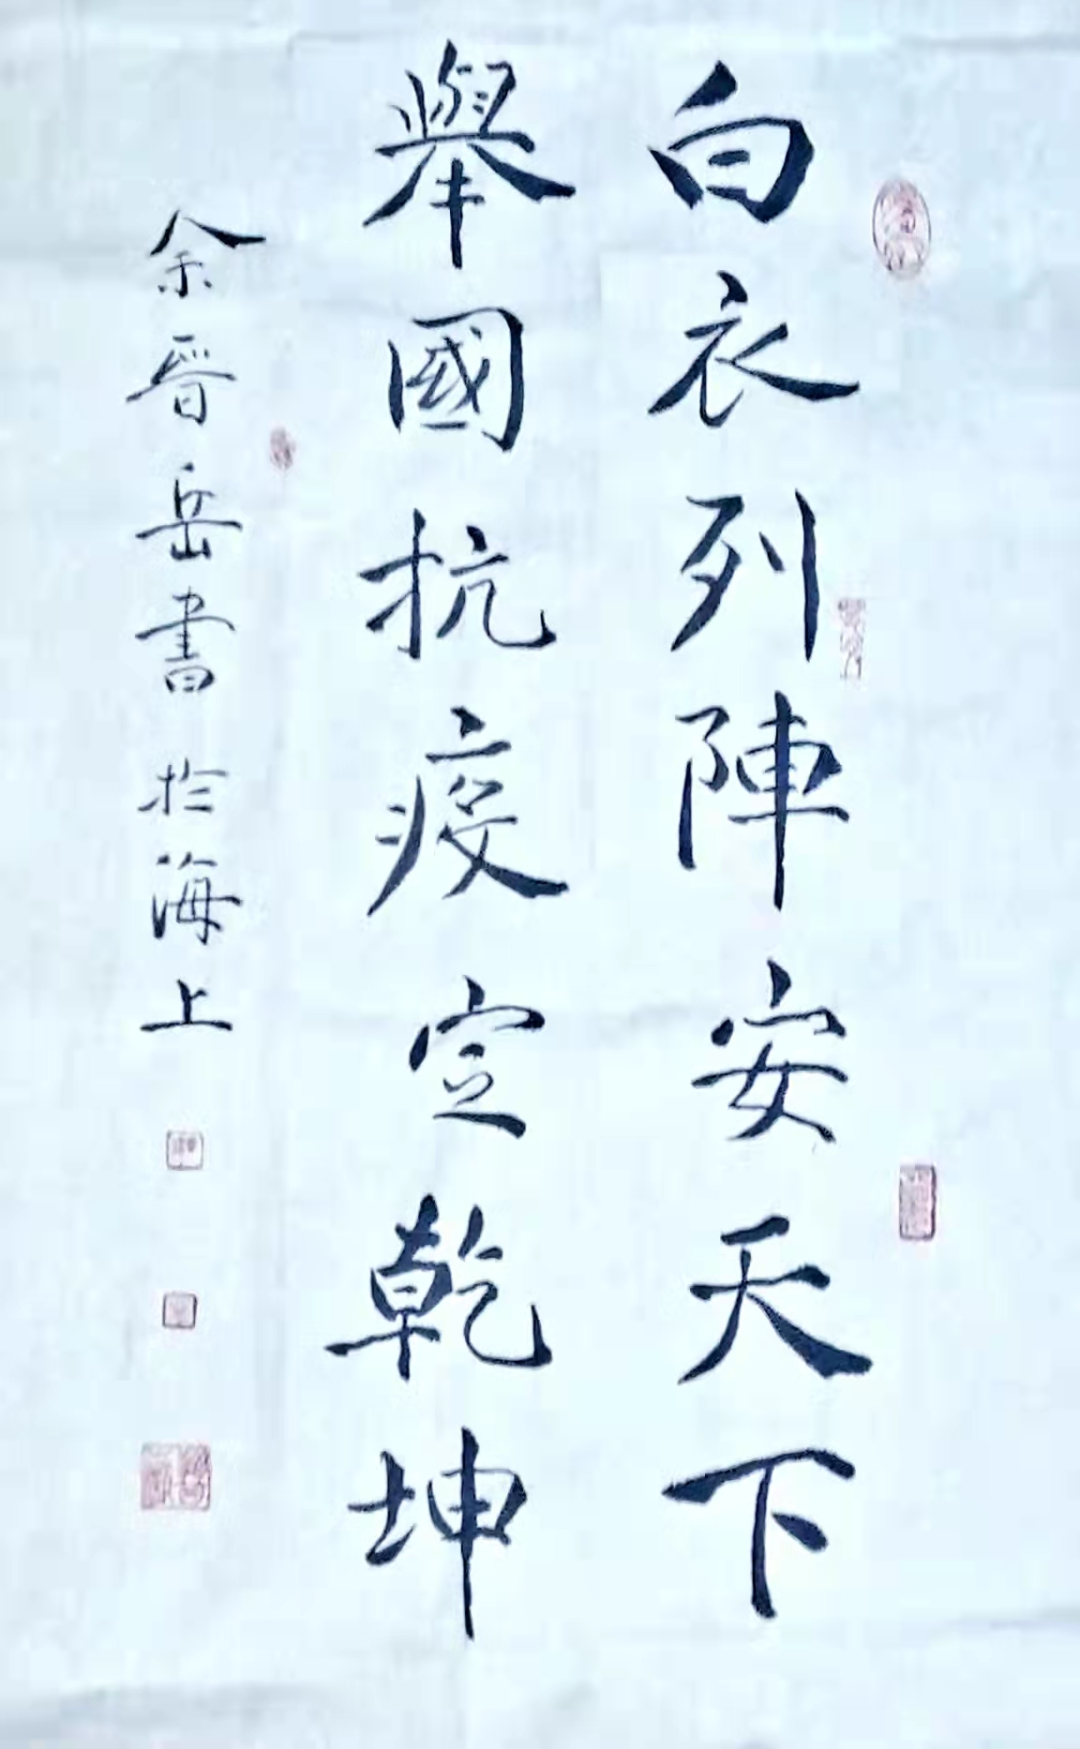 白衣列陣安天下
舉國抗疫定乾坤
余晉岳書於海上